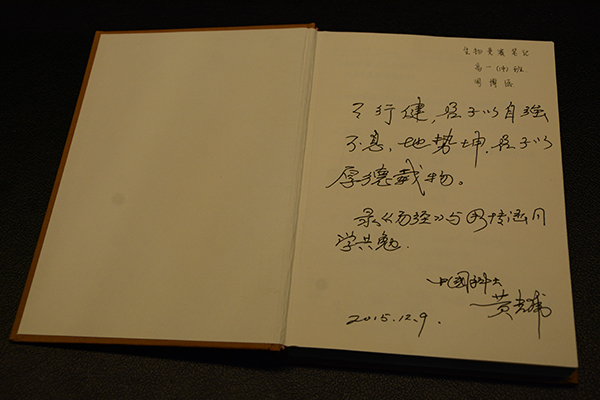 生物竞赛笔记
高一(14)班
周博涵
天行健,君子以自强
不息,地势坤,君子以
厚德载物。
录《易经》与周博涵同
学共勉.
中国科大
黄
2015.12.9.